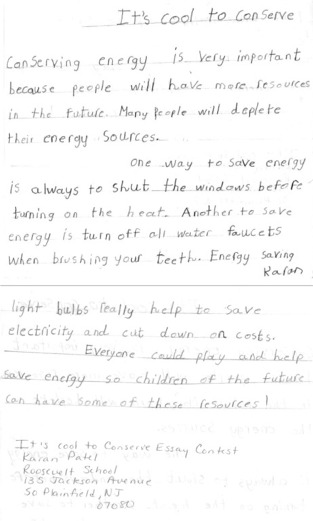 It's cool to conserve
Conserving energy is very important
because people will have more resources
in the future. Many people will deplete
their energy sources.
One way to save energy
is always to shut the windows before
turning on the heat. Another to save
energy is turn off all water faucets
when brushing your teeth. Energy saving
Karan
light bulbs really help to save
electricity and cut down on costs.
Everyone could play and help
save energy so children of the future
can have some of these resources!
It's cool to Conserve Essay Contest
Karan Patel
Roosevelt School
135 Jackson Avenue
So Plainfield, NJ
07080